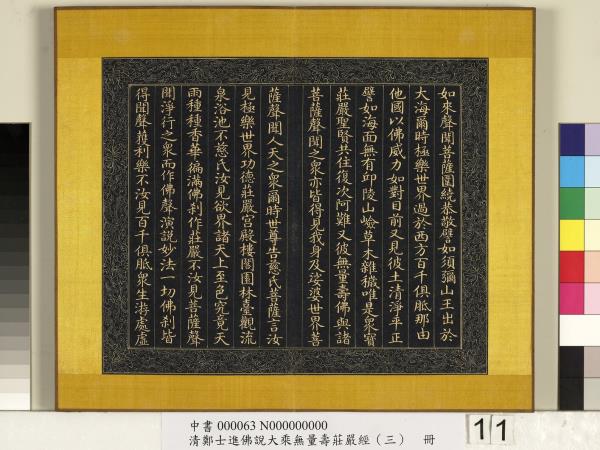 如來聲聞菩薩圍繞恭敬譬如須彌山王出於
大海爾時極樂世界過於西方百千俱胝那由
他國以佛威力如對目前又見彼土清淨平正
譬如海面無有邱陵山嶮草木雜穢唯是眾寶
莊嚴聖賢共住復次阿難又彼無量壽佛與諸
菩薩聲聞之眾亦皆得見我身及娑婆世界菩
薩聲聞人天之眾爾時世尊告慈氏菩薩言汝
見極樂世界功德莊嚴宮殿樓閣園林臺觀流
泉浴池不慈氏汝見欲界諸天上至色究竟天
雨種種香華徧滿佛刹作莊嚴不汝見菩薩聲
聞淨行之眾而作佛聲演說妙法一切佛刹皆
得聞聲獲利樂不汝見百千俱胝眾生游處虛
中書 000063 N000000000
清鄭士進佛說大乘無量壽莊嚴經（三） 冊
11